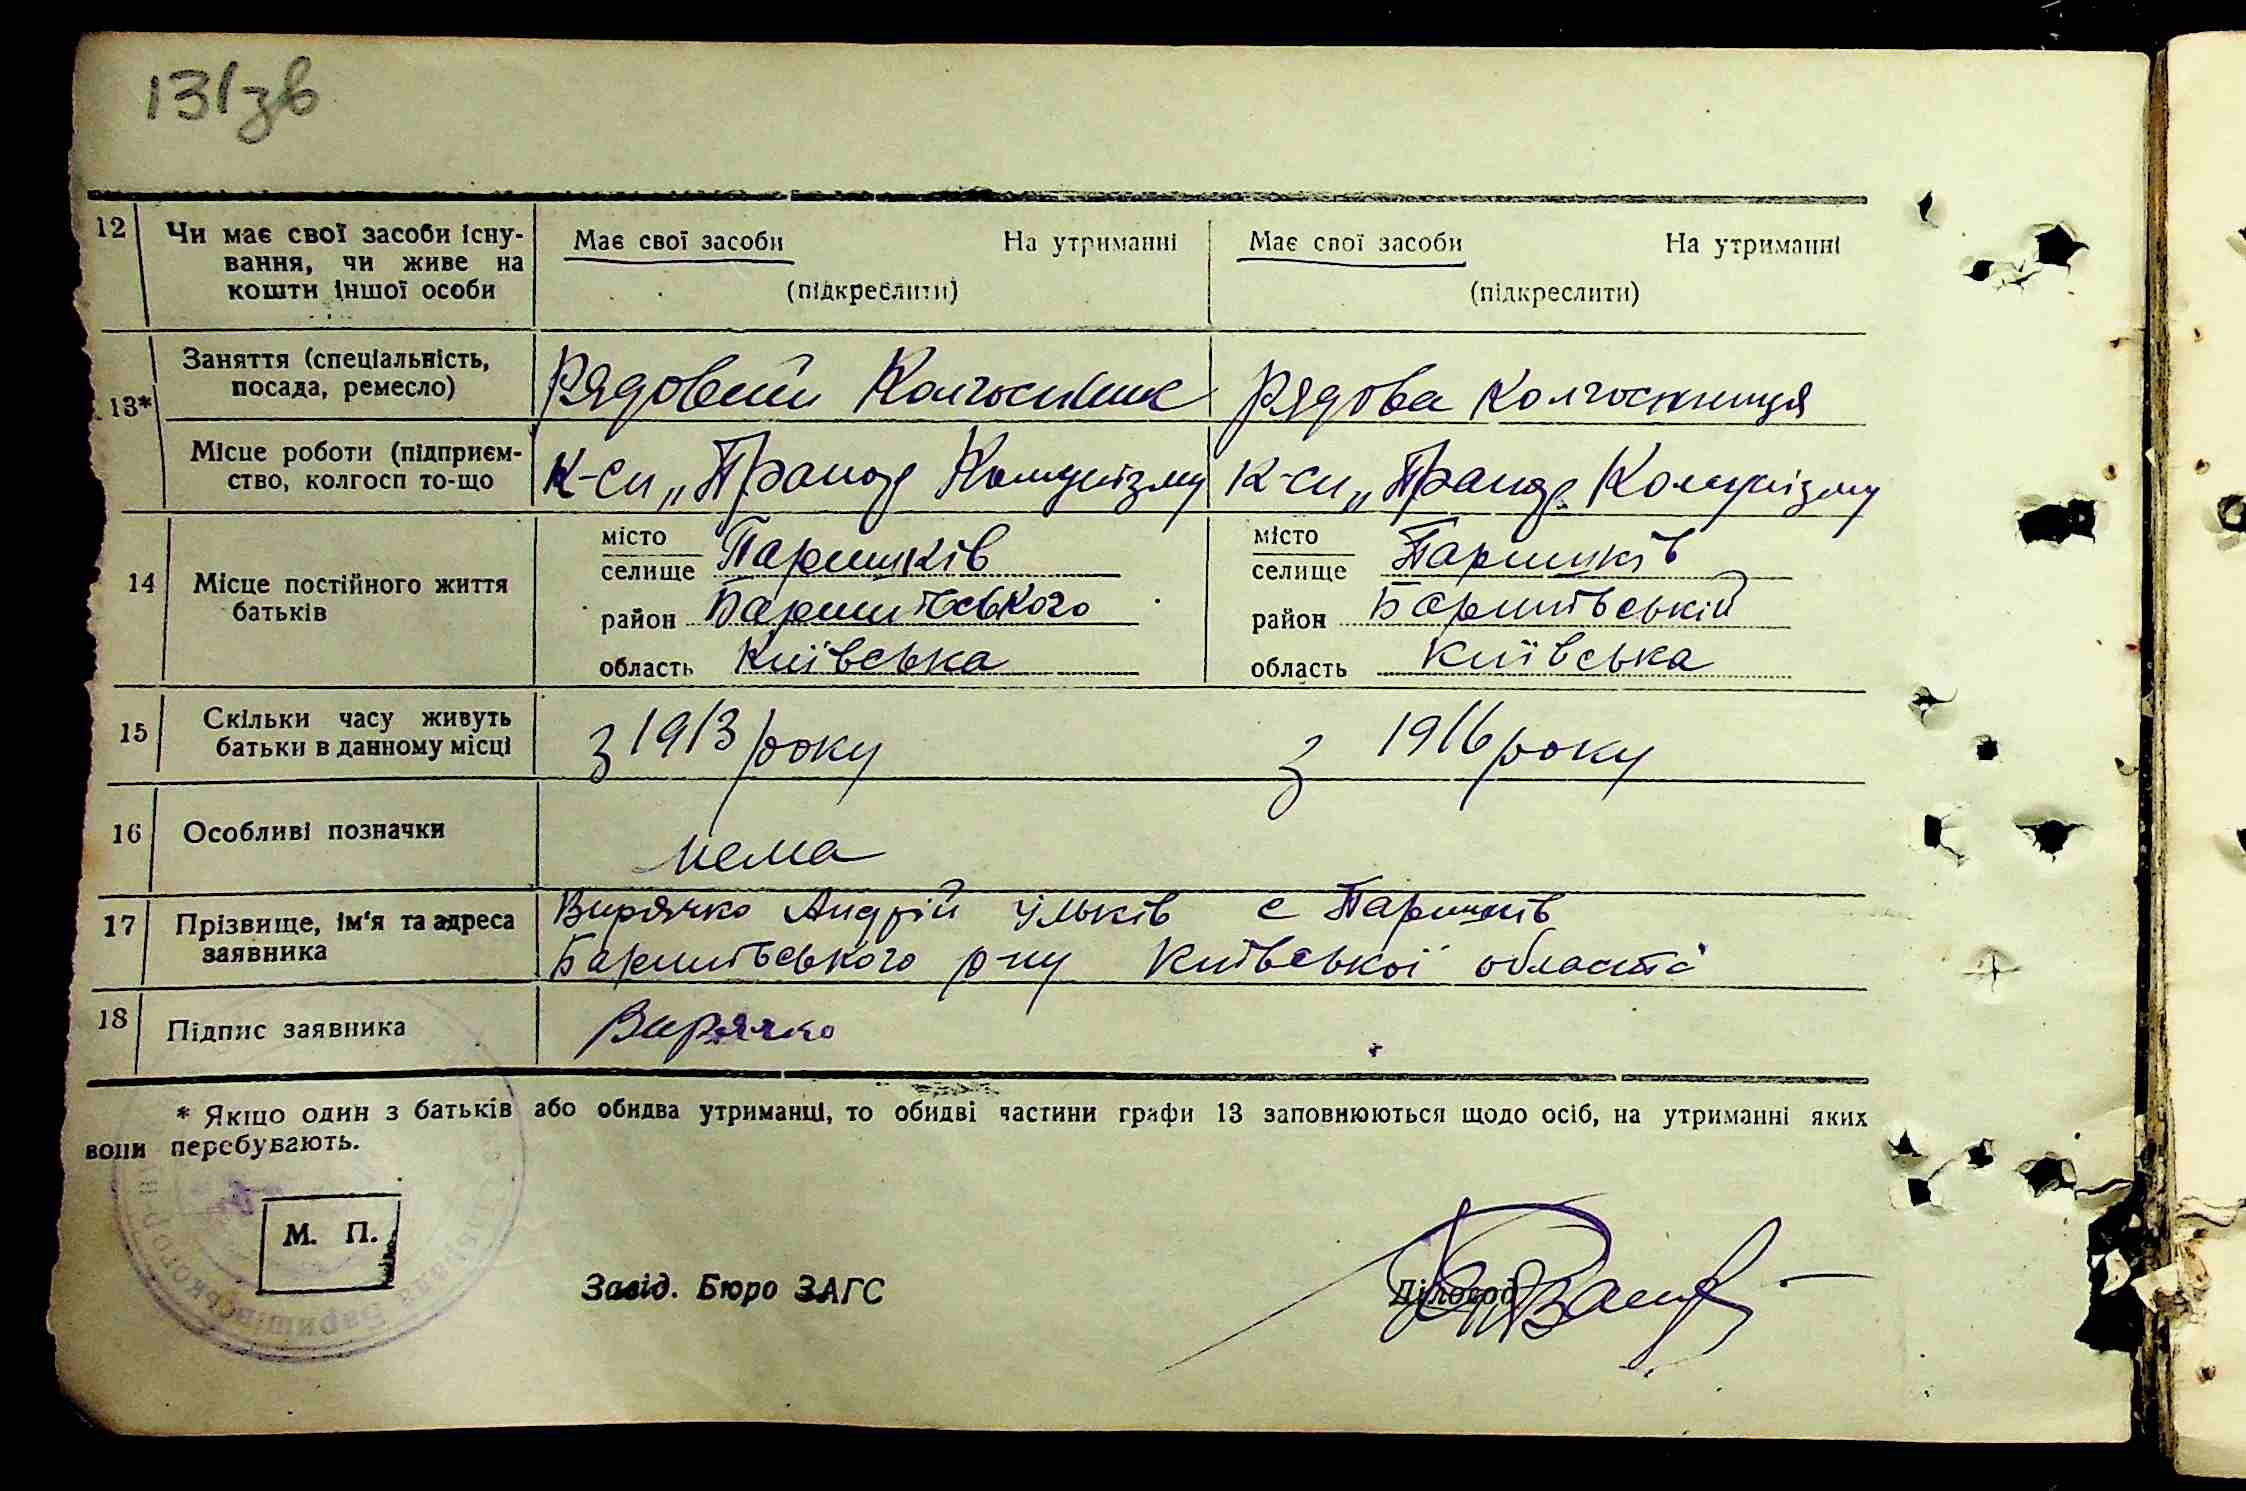 131зв
12 Чи має свої засоби існу-
вання, чи живе на
кошти іншої особи
Має свої засоби На утриманні
(підкреслити)
Має свої засоби На утриманні
(підкреслити)
13*
Заняття (спеціальність,
посада, ремесло)
Рядовий Колгоспник
Рядова Колгоспниця
Місце роботи (підприєм-
ство, колгосп то-що
К-сп „Прапор Комунізму
К-сп „Прапор Комунізму
14 Місце постійного життя
батьків
місто
селище Паришків
район Баришівського
область Київська
місто
селище Паришків
район Баришівській
область Київська
15 Скільки часу живуть
батьки в данному місці
з 1913 року
з 1916 року
16 Особливі позначки
нема
17 Прізвище, ім'я та адреса
заявника
Вирячко Андрій Ільків с Паришків
Баришівського р-ну Київської області
18 Підпис заявника
Вирячко
* Якщо один з батьків або обидва утриманці, то обидві частини графи 13 заповнюються щодо осіб, на утриманні яких
вони перебувають.
М. П.
Завід. Бюро ЗАГС
Діловод